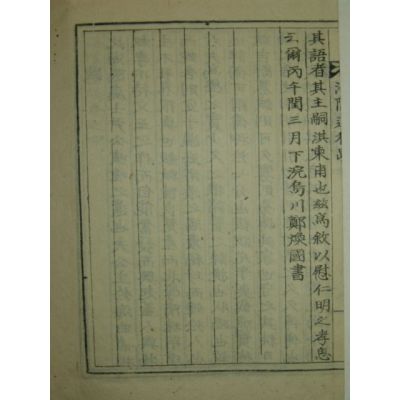 其語者其主嗣淇東甫也玆爲敘以慰仁明之孝思
云爾丙午閏三月下浣烏川鄭煥國書